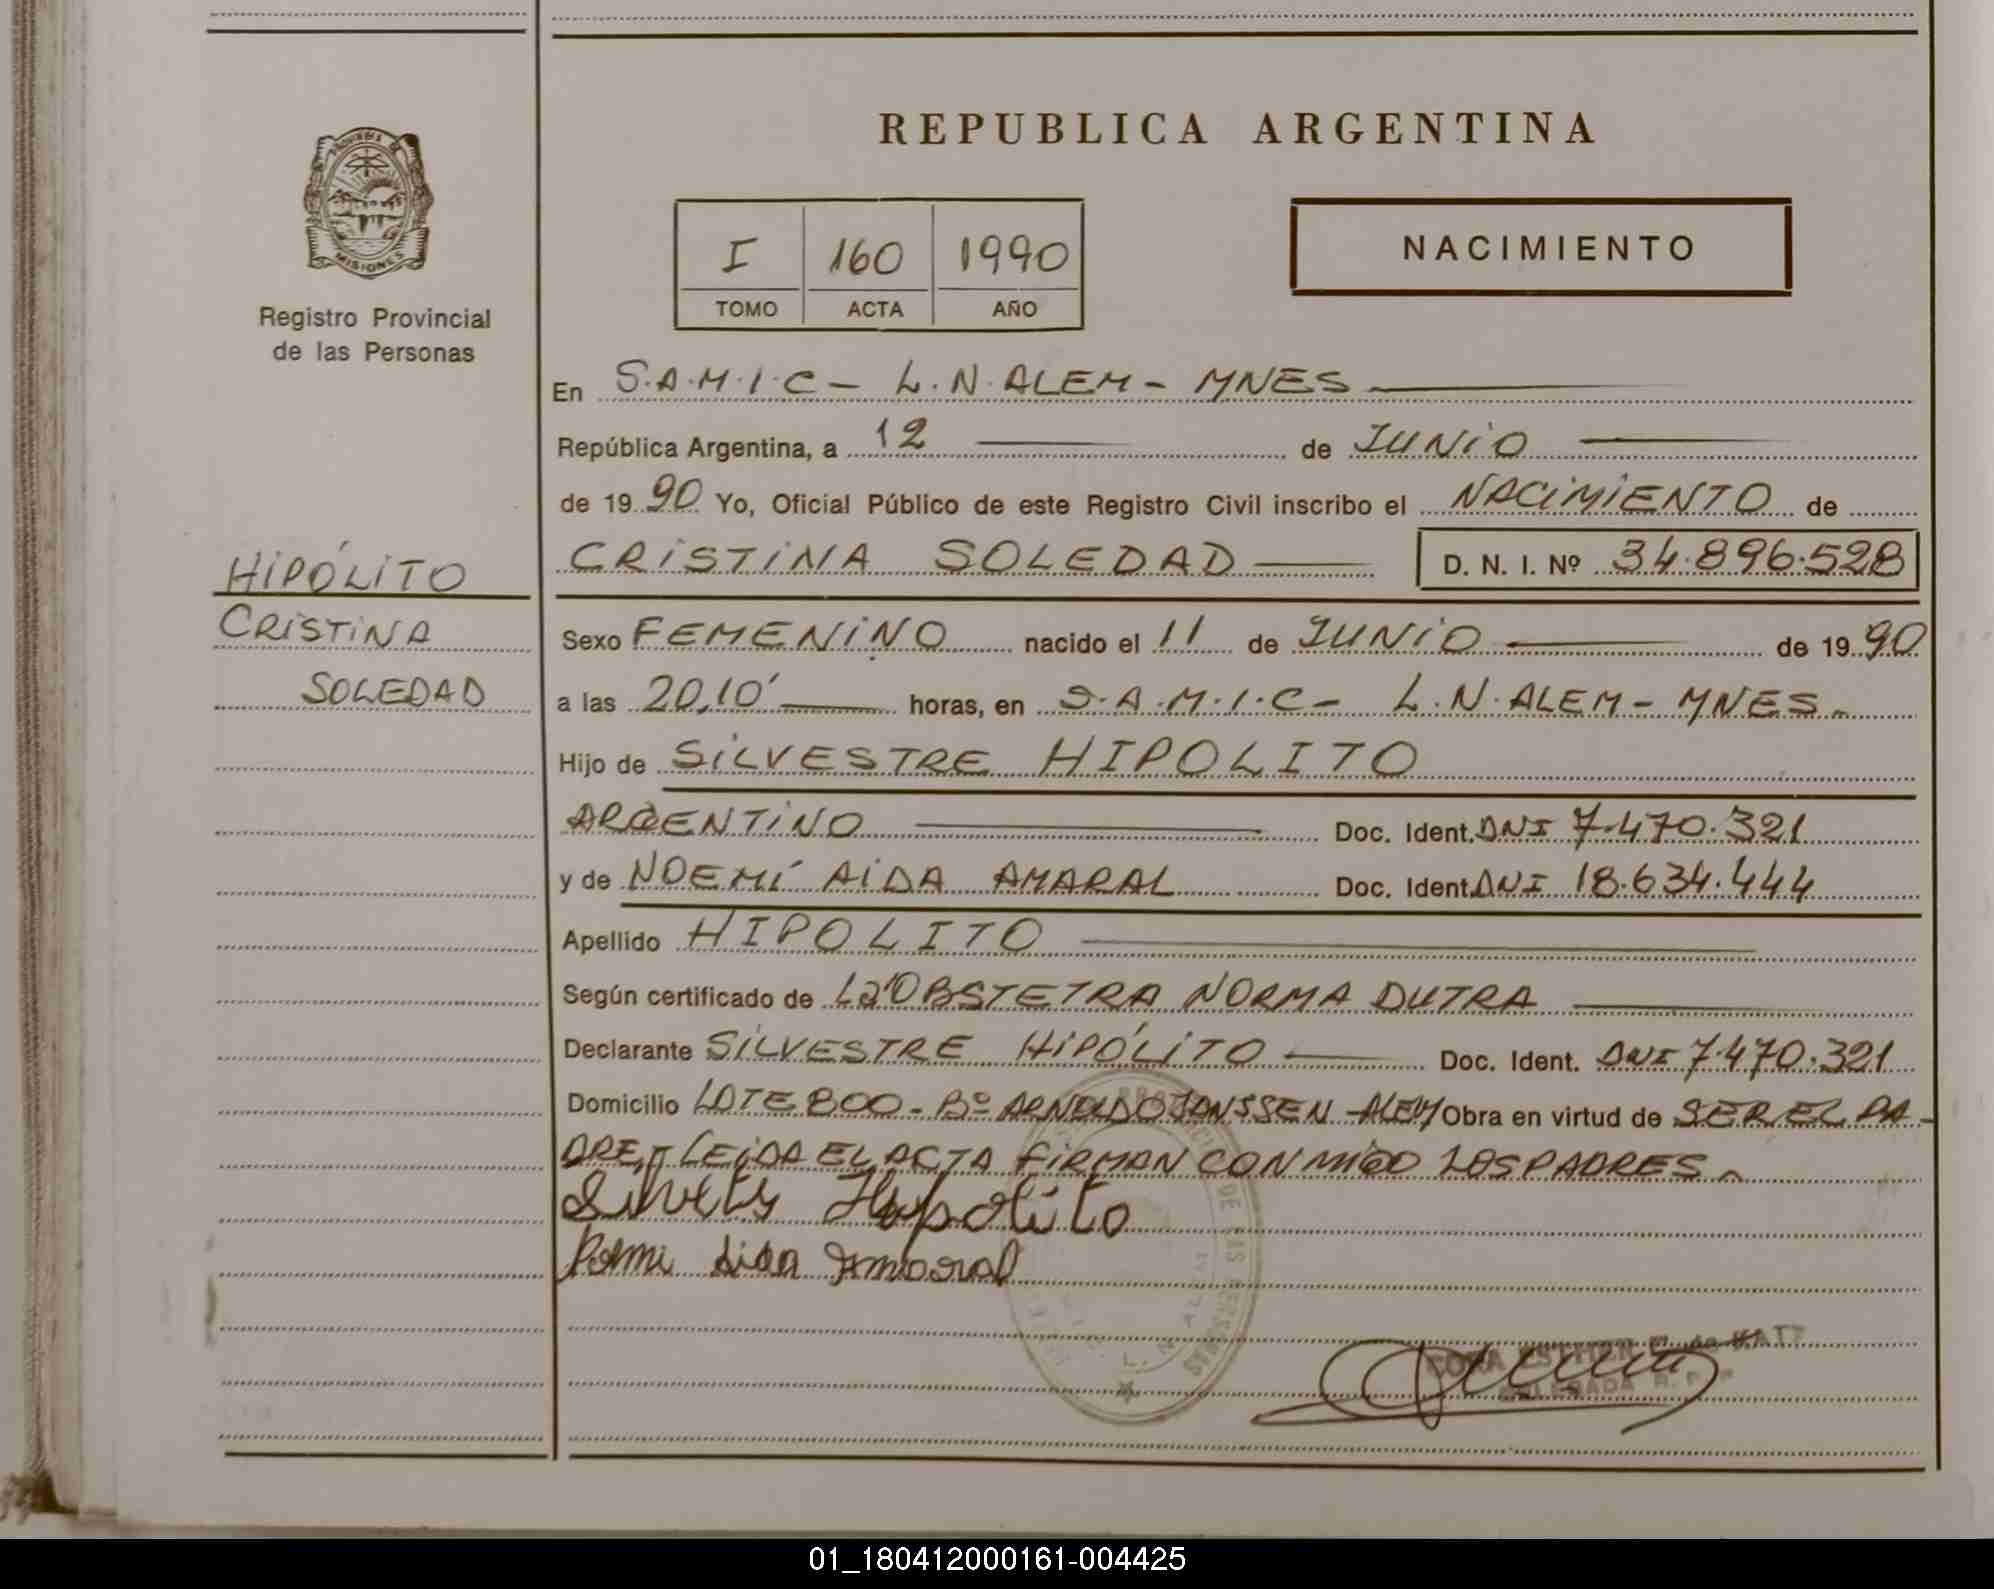 REPUBLICA ARGENTINA
PROVINCIA DE
MISIONES
Registro Provincial
de las Personas
I 160 1990
TOMO ACTA AÑO
NACIMIENTO
En S.A.M.I.C - L.N. ALEM - MNES
República Argentina, a 12 de JUNIO
de 19 90 Yo, Oficial Público de este Registro Civil inscribo el NACIMIENTO de
CRISTINA SOLEDAD D. N. I. Nº 34.896.528
HIPÓLITO
CRISTINA
SOLEDAD
Sexo FEMENINO nacido el 11 de JUNIO de 19 90
a las 20,10' horas, en S.A.M.I.C - L.N. ALEM - MNES.
Hijo de SILVESTRE HIPOLITO
ARGENTINO Doc. Ident. DNI 7.470.321
y de NOEMÍ AIDA AMARAL Doc. Ident. DNI 18.634.444
Apellido HIPOLITO
Según certificado de La OBSTETRA NORMA DUTRA
Declarante SILVESTRE HIPÓLITO Doc. Ident. DNI 7.470.321
Domicilio LOTE 800 - Bº ARNOLDO JANSSEN - ALEM Obra en virtud de SER EL PA-
DRE, LEIDA EL ACTA FIRMAN CONMIGO LOS PADRES
Hipolito
Aida Amaral
DE LAS PERSONAS
L. N. ALEM
01_180412000161-004425